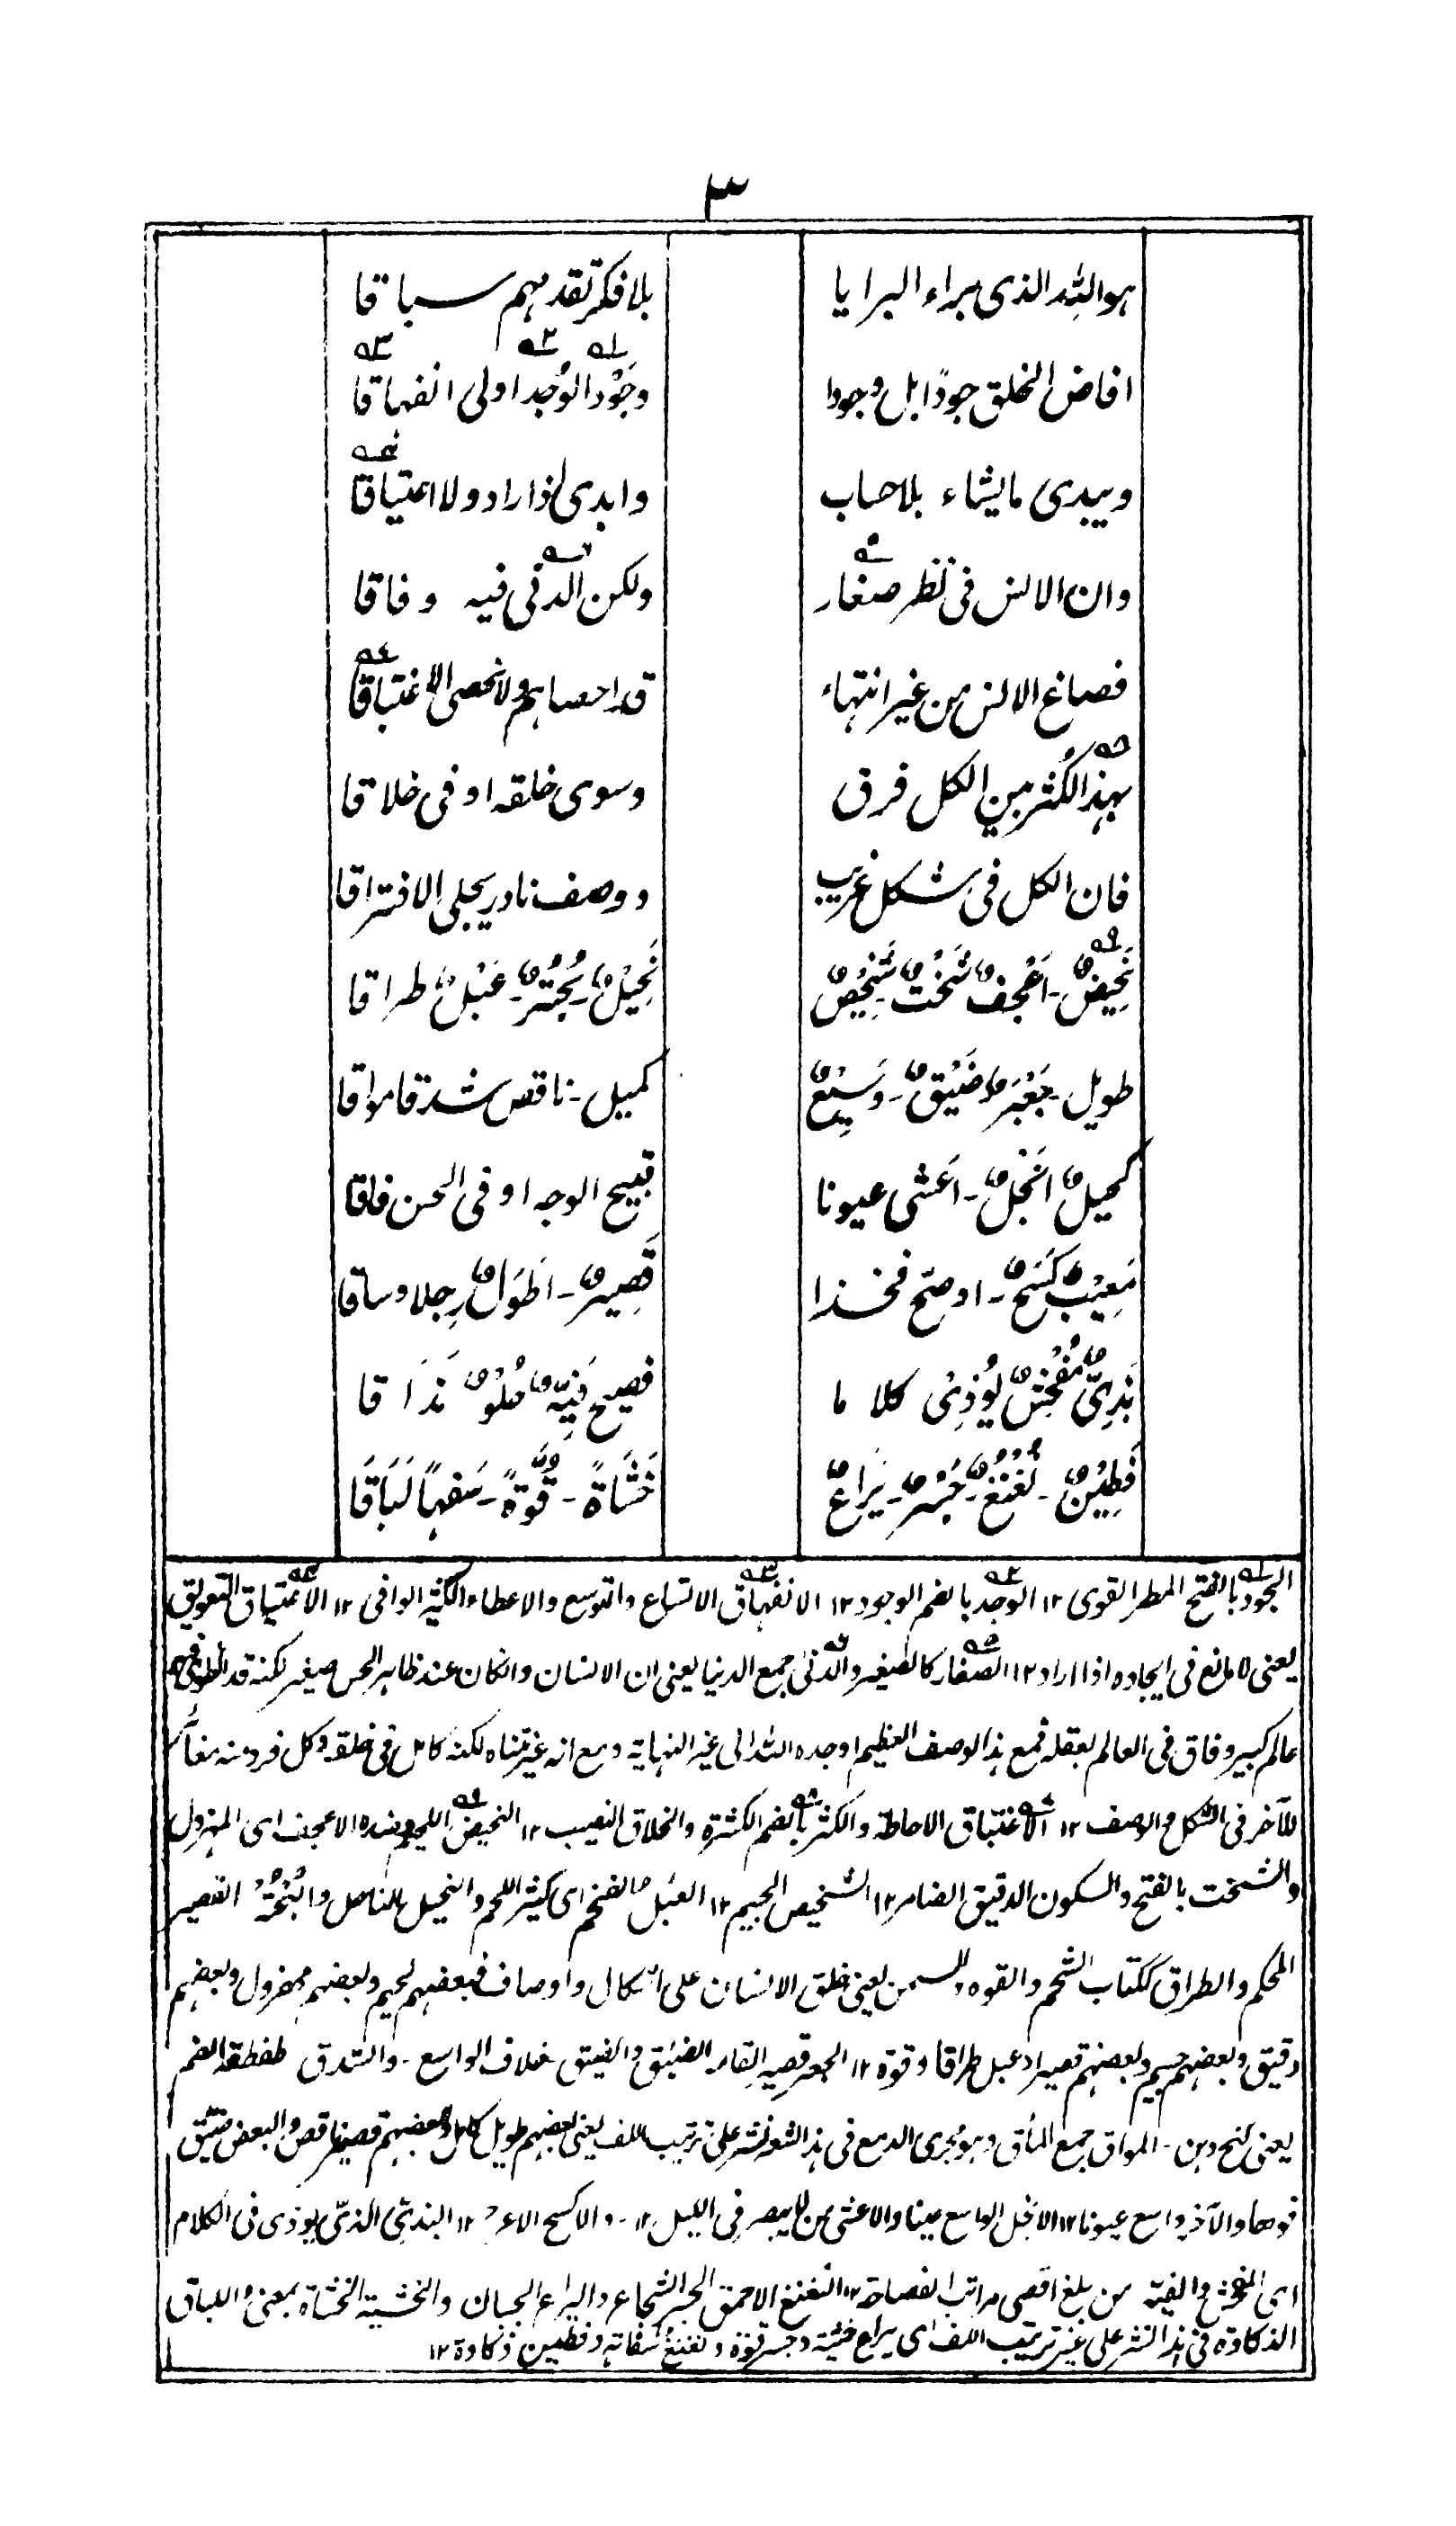 ٣
هو اللہ الذی براء البرایا بلا فکر تقدمہم سباقا
افاض الخلق جودًا بل وجودا وجَوْد الوُجد اولی انفہاقا
ویبدی ما یشاء بلا حساب وابدی اذا اراد ولا اعتیاقا
وان الانس فی نظر صغار ولکن الدنی فیہ وفاقا
فصاغ الانس من غیر انتہاء قد احصاہم ولا نحصی الاغتباقا
بہذا الکُثر بین الکل فرق وسوی خلقہ اوفی خلاقا
فان الکل فی شکل غریب ووصف نادر یجلی الافتراقا
نَحِیضٌ - اَعْجفٌ شَخْتٌ - شَخِیْصٌ نَحِیْلٌ - بُحْتُرٌ - عَبْلٌ طراقا
طویل - جَعْبَرٌ ضَیْقٌ - وَسِیْعٌ کمیل - ناقص شدقا مواقا
کحیلٌ اَنْجَلٌ - اَعْشی عیونا قبیح الوجہ او فی الحسن فاقا
مَعِیْبٌ کَسَحٌ - او صحّ فخذا قَصِیرٌ - اَطْوَلٌ رِجلا وساقا
بَذِیٌّ مُفْحِشٌ یُوْذِیْ کلاما فصیح فَیِّہٌ حُلْوٌ مَذَاقا
فَطِیْنٌ - لُغْنُغٌ - جَسْرٌ - یَرَاعٌ خَشَاةً - قُوَّةً - سَفہًا لَبَاقَا
الجود بالفتح المطر القوی ١٢ الوجد بالضم الوجود ١٢ الانفہاق الاتساع والتوسع والاعطاء الکثیر الوافی ١٢ الاعتیاق التعویق
یعنی لا مانع فی ایجادہ اذا اراد ١٢ الصغار کالصغیر والدنی جمع الدنیا یعنی ان الانسان وانکان عند ظاہر الحس صغیر لکنہ قد
عالم کبیر وفاق فی العالم بعقلہ فمع ہذا الوصف العظیم اوجدہ اللہ الی غیر النہایة ومع انہ غیر متناہ لکنہ کامل فی خلقہ وکل فرد منہ مغائر
للآخر فی الشکل والوصف ١٢ الاغتباق الاحاطة والکثر بالضم الکثرة والخلاق النصیب ١٢ النحیض اللحیم وضدہ الاعجف ای المہزول
والشخت بالفتح والسکون الدقیق الضامر ١٢ الشخیص الجسیم ١٢ العبل الضخم ای کثیر اللحم والنحیل الناحل والبُحْتُر القصیر
المحکم والطراق ککتاب الشحم والقوہ والسمن یعنی خلق الانسان علی اشکال واوصاف فبعضہم لحیم وبعضہم مہزول وبعضہم
دقیق وبعضہم جسیم وبعضہم قصیر او عبل طراقا وقوة ١٢ الجعبر قصیر القامہ الضیق والضیق خلاف الواسع - والشدق طفطفة الفم
یعنی کنج دہن - المواق جمع المأق وہو مجری الدمع فی ہذا الشعر نشر علی ترتیب اللف یعنی بعضہم طویل کامل وبعضہم قصیر ناقص والبعض ضیق
فوها والآخر واسع عیونا ١٢ الانجل الواسع عینا والاعشی من لا یبصر فی اللیل ١٢ - والاکسح الاعرج ١٢ البذی الذی یوذی فی الکلام
ای المفحش والفیہ من بلغ اقصی مراتب الفصاحة ١٢ اللغنغ الاحمق الجسر الشجاع والیراع الجبان والخشیة الخشاة بمعنی واللباق
الذکاوة فی ہذا النشر علی غیر ترتیب اللف ای یراع خشیة وجسر قوة ولغنغ سفاہة وفطین ذکاوة ١٢